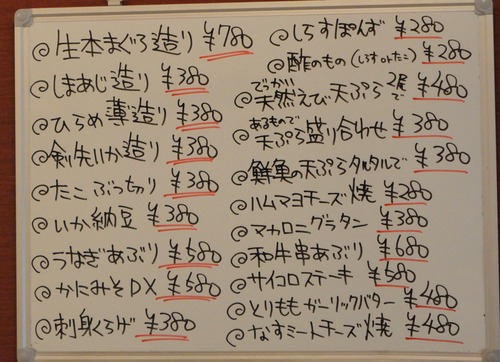 生本まぐろ造り ¥780
しまあじ造り ¥380
ひらめ薄造り ¥380
剣先いか造り ¥380
たこぶっちり ¥380
いか納豆 ¥380
うなぎあぶり ¥580
かにみそDX ¥580
刺身くらげ ¥380
しらすぽんず ¥280
酢のもの(しらすorたこ) ¥280
でっかい天然えび天ぷら2尾で ¥480
あるもので天ぷら盛り合わせ ¥380
鮮魚の天ぷらタルタルで ¥380
ハムマヨチーズ焼 ¥280
マカロニグラタン ¥380
和牛串あぶり ¥680
サイコロステーキ ¥580
とりももガーリックバター ¥480
なすミートチーズ焼 ¥480